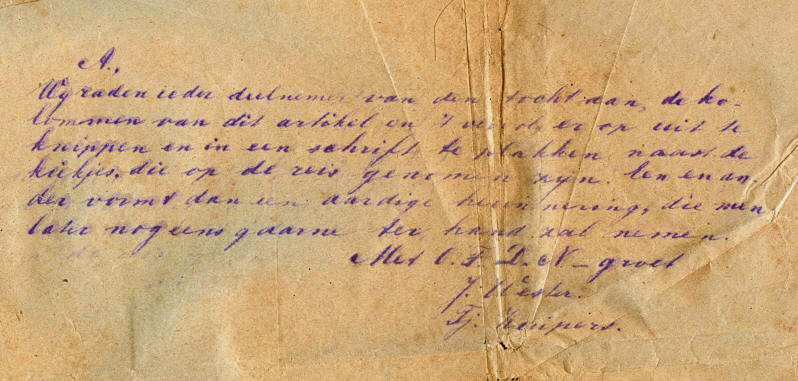 A.,
Wy raden ieder deelnemer van den tocht aan, de ko-
lommen van dit artikel en 't vervolg er op uit te
knippen en in een schrift te plakken naast de
kiekjes, die op de reis genomen zyn. Een en an-
der vormt dan een aardige herinnering, die men
later nog eens gaarne ter hand zal nemen.
Met O. F. D. N - groet
J. Wester.
Tj. Kuipers.